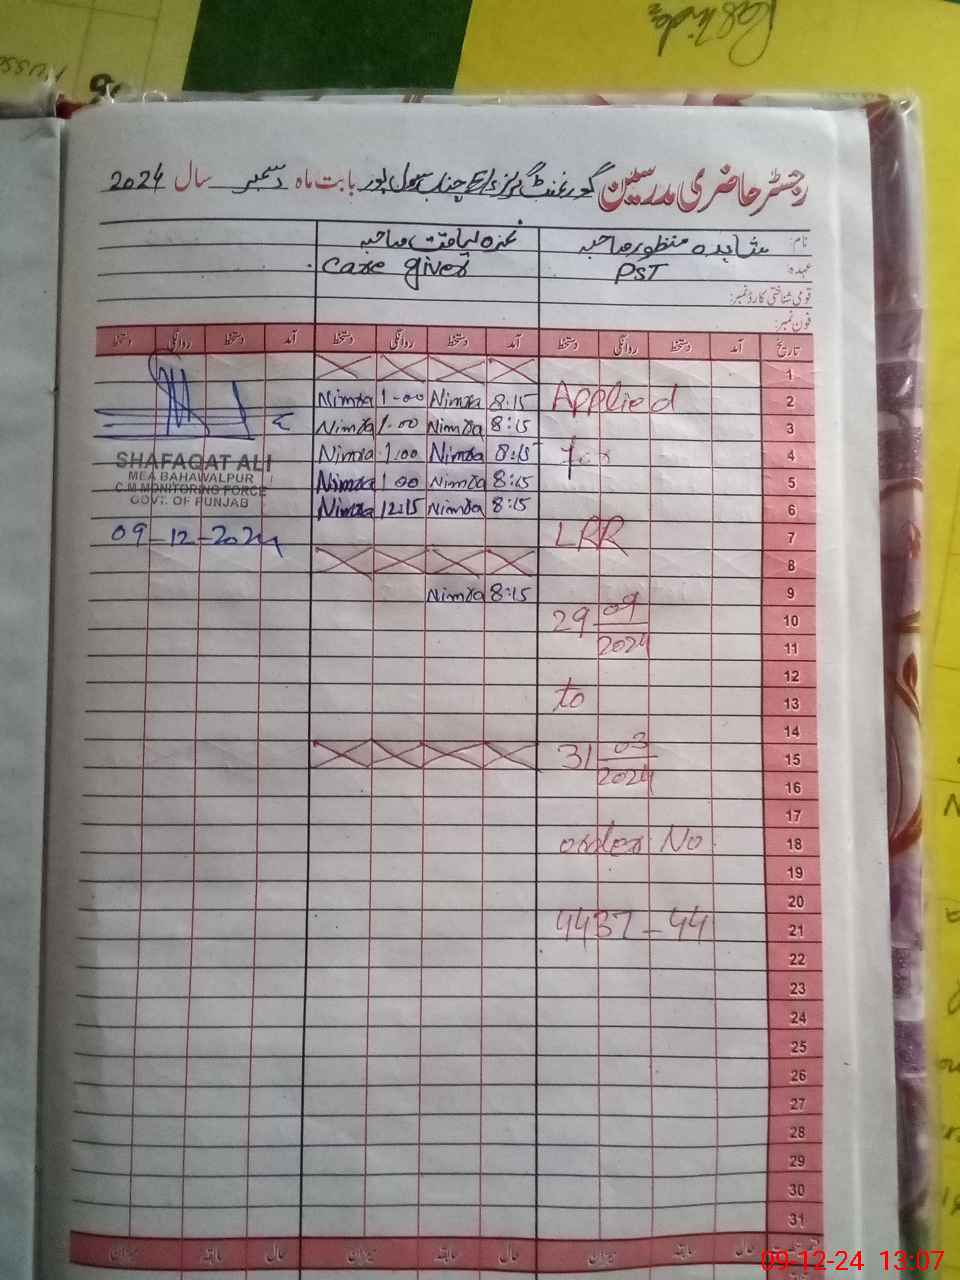 Rashida
رجسٹر حاضری مدرسین گورنمنٹ گرلز E/S چناب رسول پور بابت ماہ دسمبر سال 2024
نام: شاہدہ منظور صاحبہ نمزہ لیاقت صاحبہ
عہدہ: PST Care giver
قومی شناختی کارڈ نمبر:
فون نمبر:
تاریخ آمد دستخط روانگی دستخط آمد دستخط روانگی دستخط آمد دستخط روانگی دستخط
1
2 Applied 8:15 Nimra 1-00 Nimra
3 8:15 Nimra 1.00 Nimra
4 for 8:15 Nimra 1:00 Nimra
SHAFAQAT ALI
MEA BAHAWALPUR
5 8:15 Nimra 1 00 Nimra
C.M MONITORING FORCE
GOVT. OF PUNJAB
6 8:15 Nimra 12:15 Nimra
7 LRR 09-12-2024
8
9 8:15 Nimra
10 29 09
11 2024
12
13 to
14
15 31 03
16 2024
17
18 order No
19
20
21 4437-44
22
23
24
25
26
27
28
29
30
31
حال سابقہ میزان حال سابقہ میزان حال سابقہ میزان
09-12-24 13:07